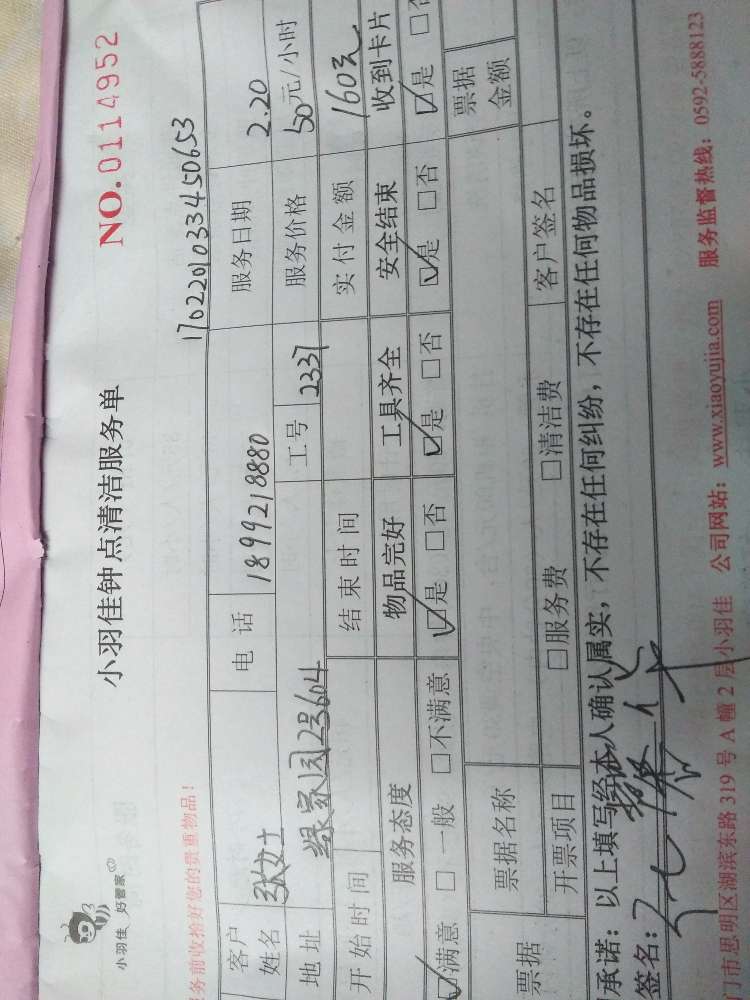 小羽佳 好管家
小羽佳钟点清洁服务单
NO.0114952
务前收拾好您的贵重物品!
1702201033450653
客户姓名 张女士 电话 18999218880 服务日期 2.20
地址 绿家园12号604 工号 2337 服务价格 50元/小时
开始时间 结束时间 实付金额 160元
服务态度 物品完好 工具齐全 安全结束 收到卡片
☑满意 □一般 □不满意 ☑是 □否 ☑是 □否 ☑是 □否 ☑是 □否
票据 票据名称 票据金额
开票项目 □服务费 □清洁费 客户签名
承诺:以上填写经本人确认属实,不存在任何纠纷,不存在任何物品损坏。
签名:
门市思明区湖滨东路319号A幢2层小羽佳 公司网站:www.xiaoyujia.com 服务监督热线:0592-5888123